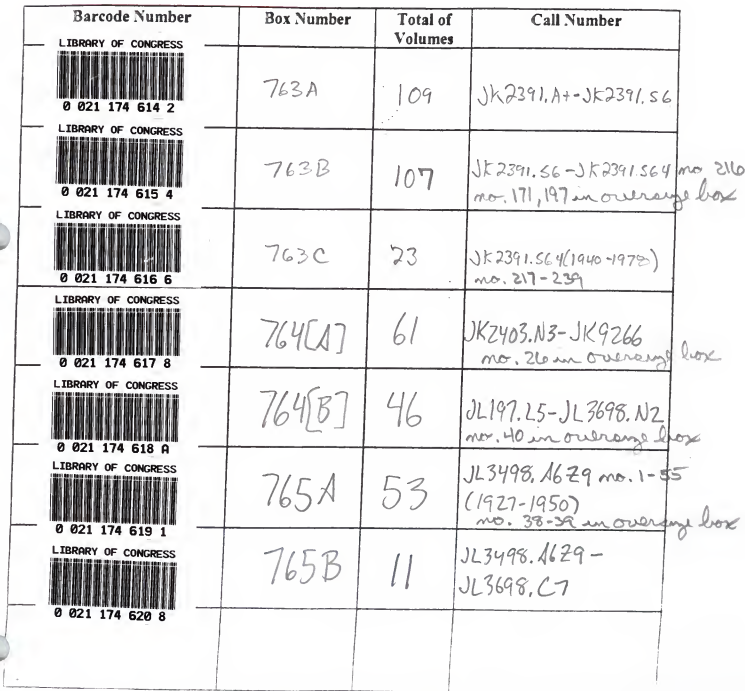 Barcode Number Box Number Total of Volumes Call Number
LIBRARY OF CONGRESS
0 021 174 614 2
763A 109 JK2391.A+-JK2391.S6
LIBRARY OF CONGRESS
0 021 174 615 4
763B 107 JK2391.S6-JK2391.S64 no. 216
no. 171, 197 in oversize box
LIBRARY OF CONGRESS
0 021 174 616 6
763C 23 JK2391.S64(1940-1978)
no. 217-239
LIBRARY OF CONGRESS
0 021 174 617 8
764[A] 61 JK2403.N3-JK9266
no. 26 in oversize box
LIBRARY OF CONGRESS
0 021 174 618 A
764[B] 46 JL197.L5-JL3698.N2
no. 40 in oversize box
LIBRARY OF CONGRESS
0 021 174 619 1
765A 53 JL3498.A6Z9 no. 1-55
(1927-1950)
no. 38-39 in oversize box
LIBRARY OF CONGRESS
0 021 174 620 8
765B 11 JL3498.A6Z9-
JL3698.C7